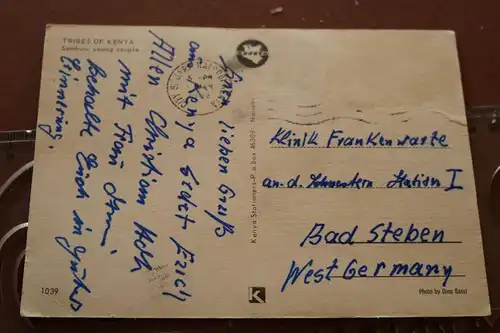 TRIBES OF KENYA
Samburu young couple
lieben Gruß
aus Kenya sendet Erich
Allen Christian
mit Frau
behalte Euch in guter
Erinnerung.
1039
Kenya Stationers P.o.box
K
Klinik Frankenwarte
an. d. Schwestern Station I
Bad Steben
West Germany
Photo by Dino Sassi